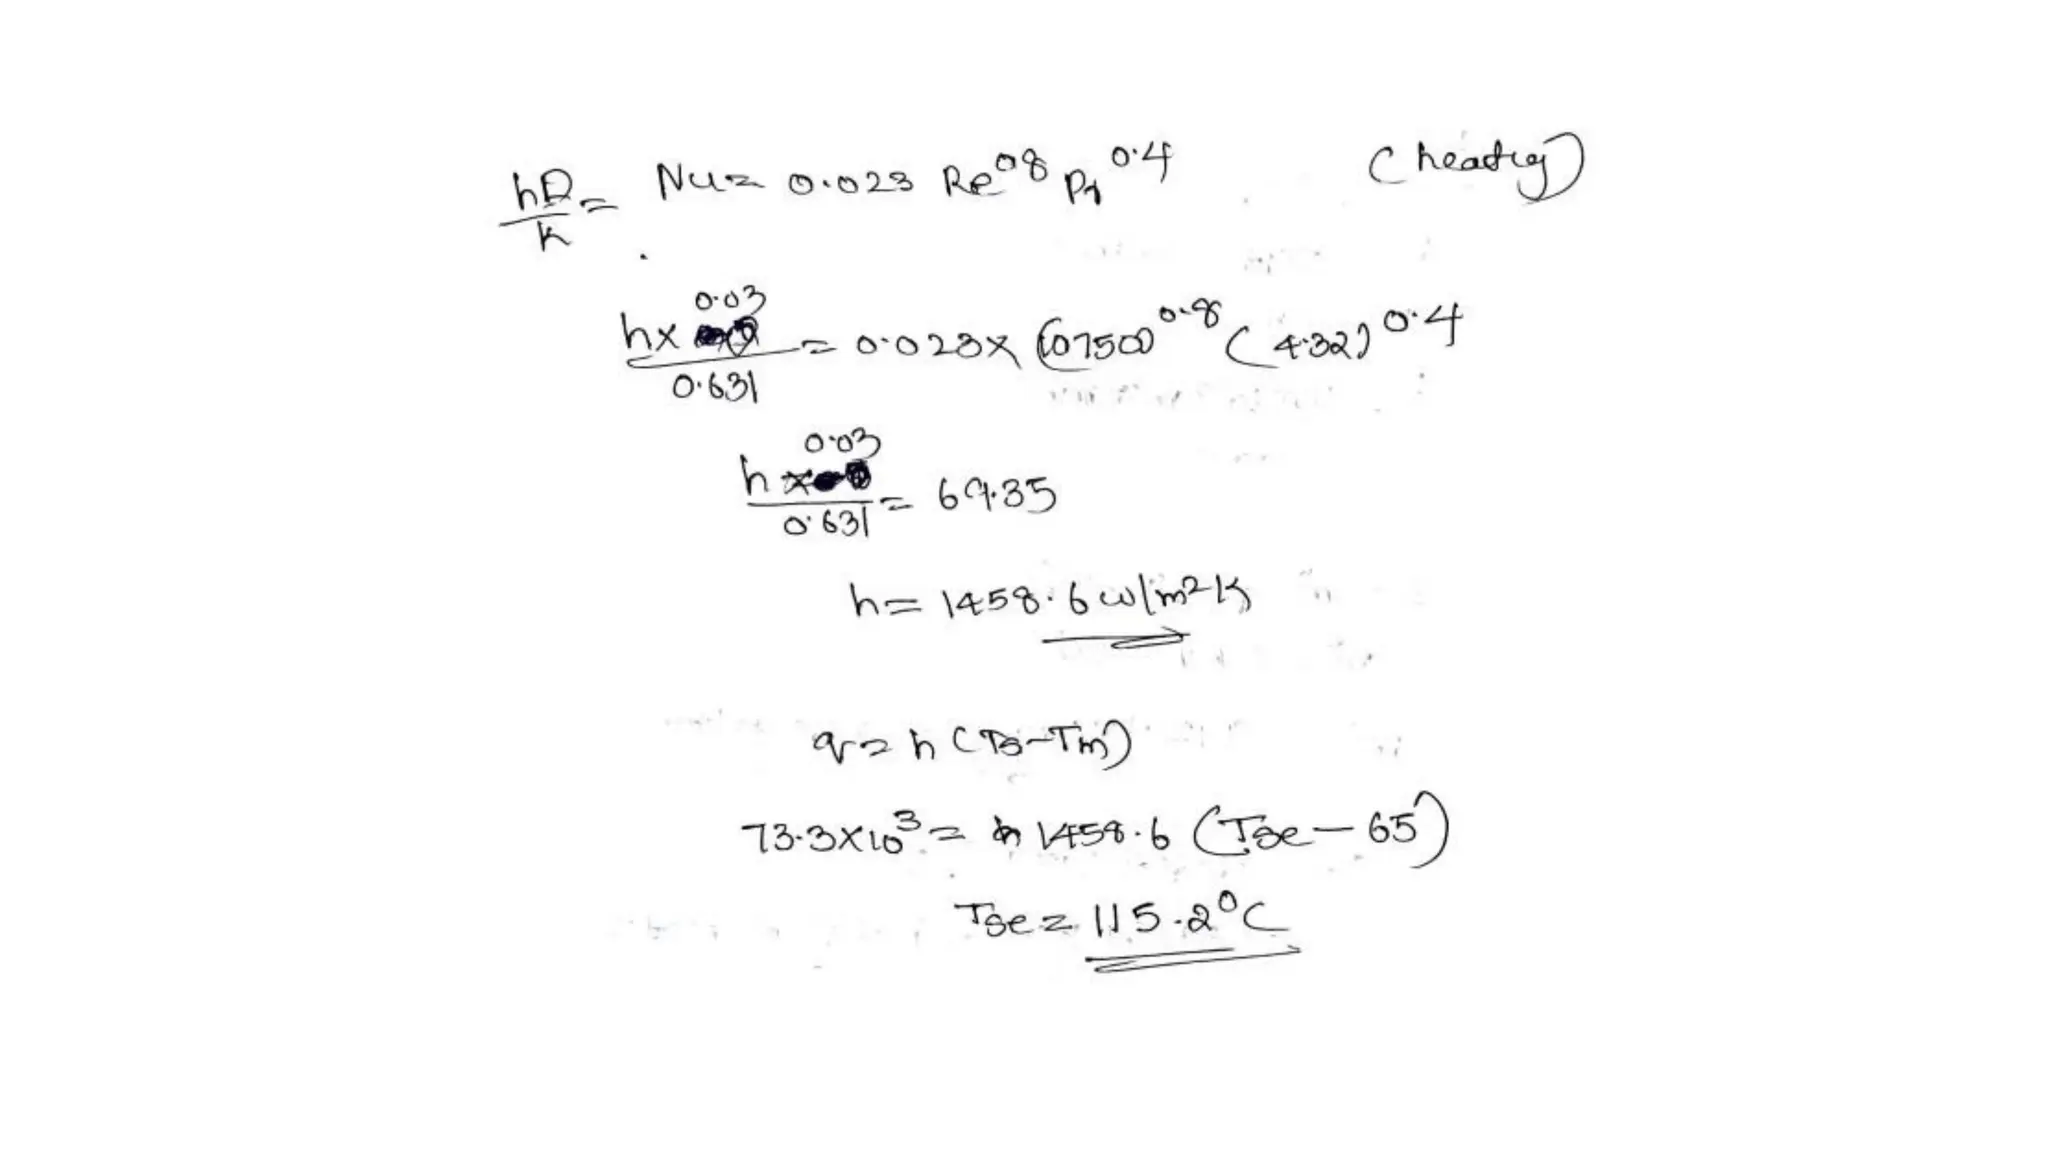 hD/k = Nu = 0.023 Re^0.8 Pr^0.4 (heating)
h× 0.03/0.631 = 0.023× (107500^0.8 (4.32)^0.4
h 0.03/0.631 = 69.35
h = 1458.6 w/m²k
q = h (Ts-Tm)
73.3×10³ = 1458.6 (Tse - 65)
Tse = 115.2°C